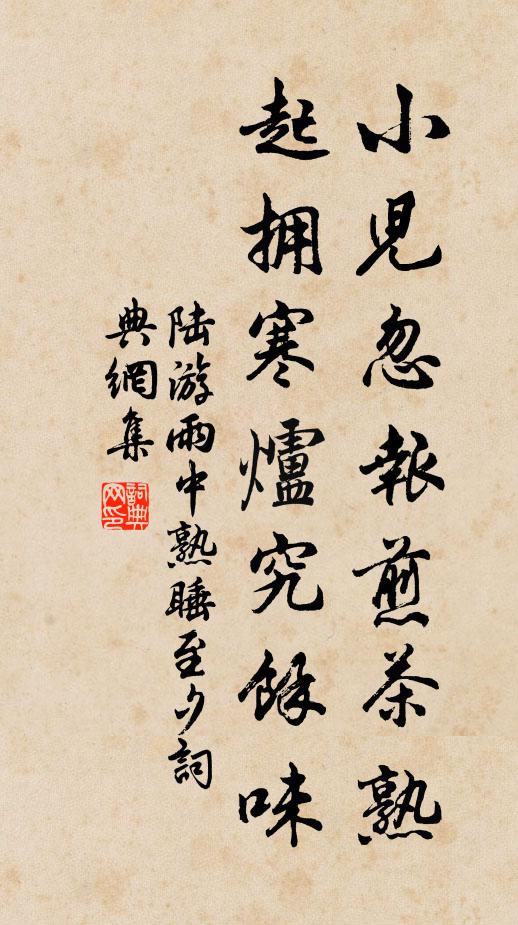 小児忽報煎茶熟
起拥寒爐究餘味
陆游雨中熟睡至夕詞
典網集
詞典网印